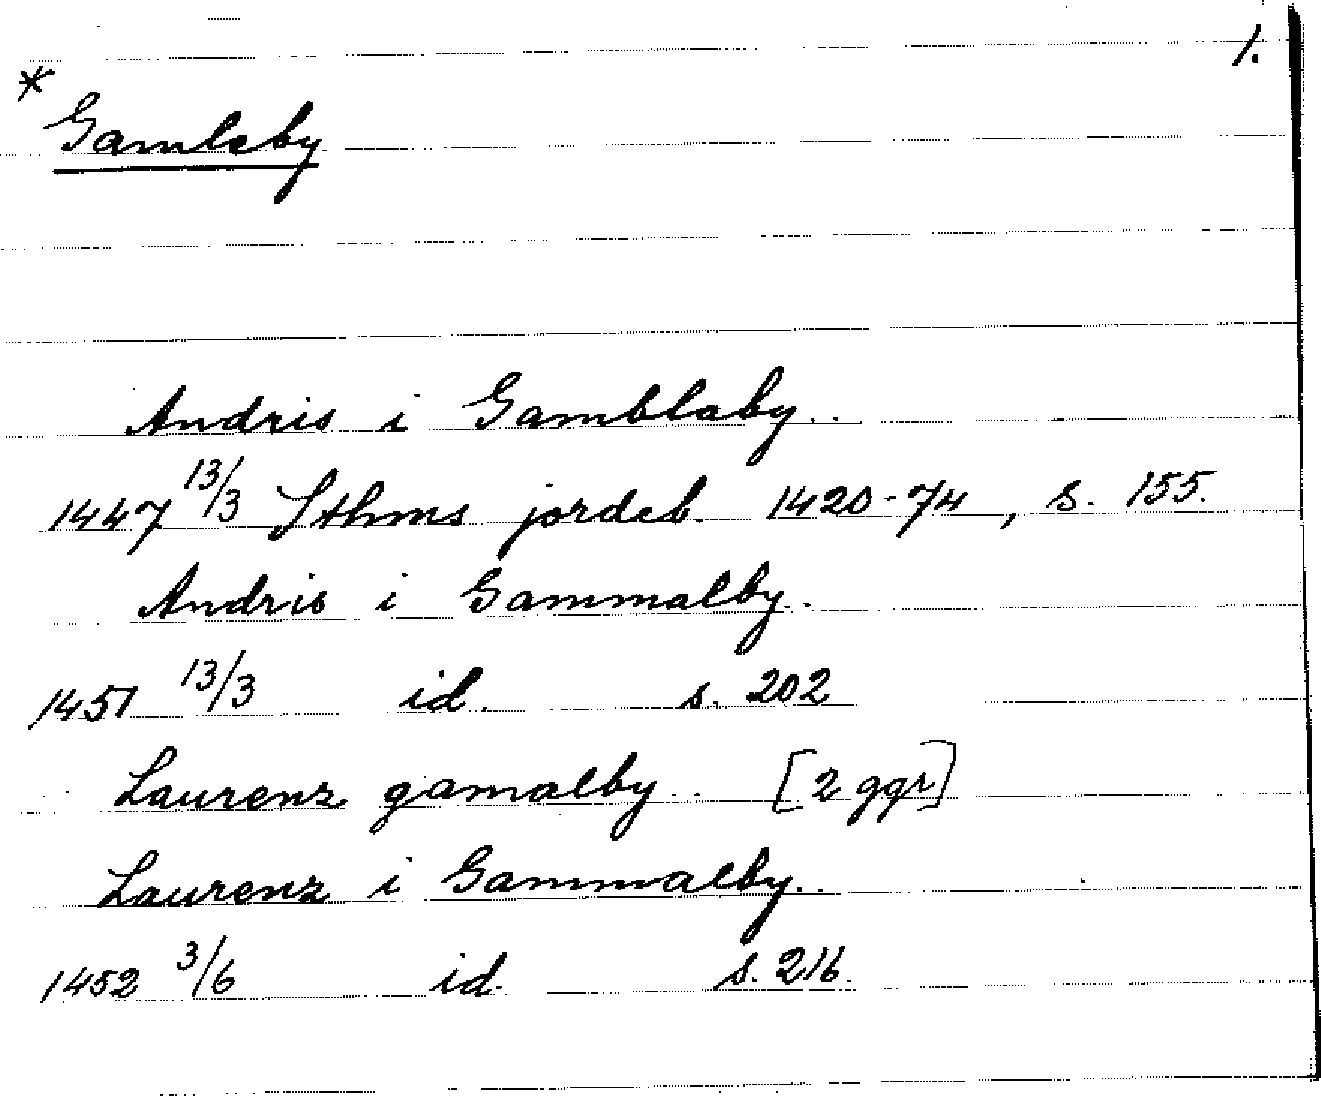 1.
* Gamleby
Andris i Gamblaby..
1447 13/3 Sthms jordeb. 1420-74, s. 155.
Andris i Gammalby.
1451 13/3 id. s. 202
Laurenz gamalby.. [2 ggr]
Laurenz i Gammalby..
1452 3/6 id. s. 216.